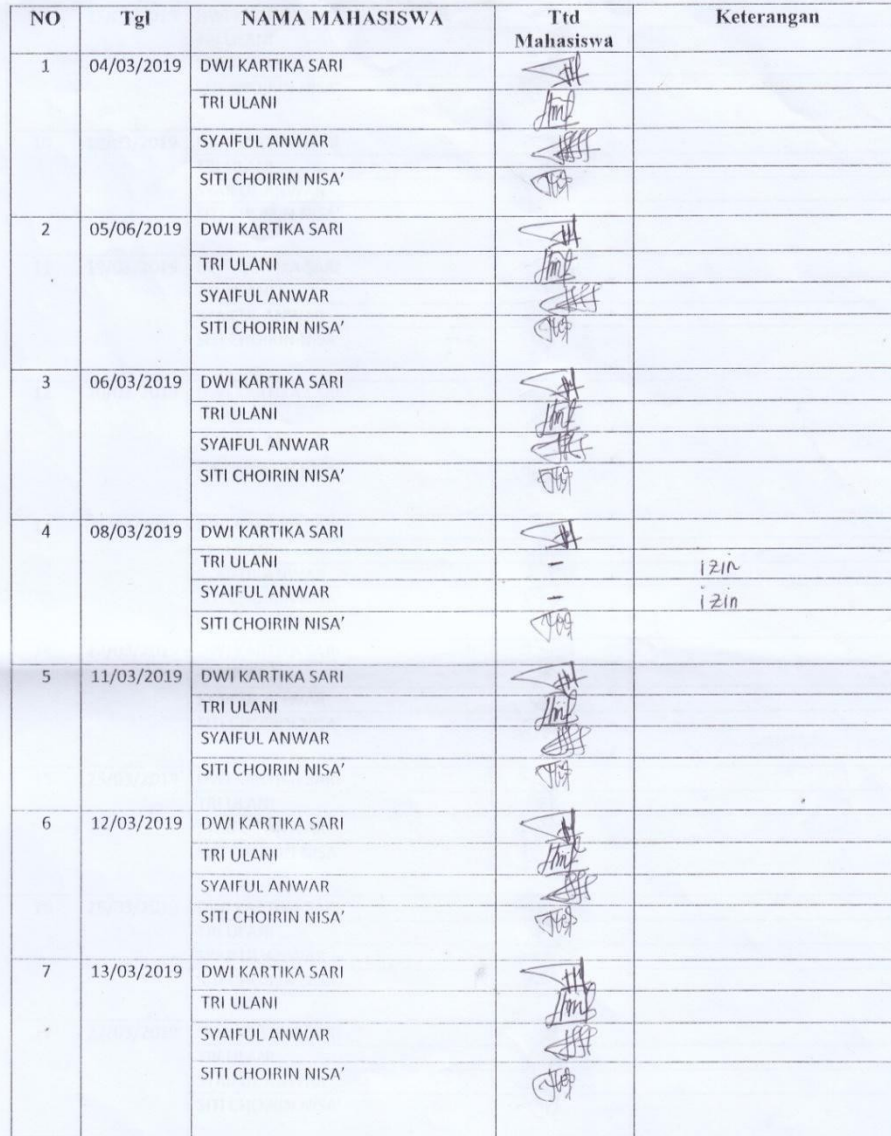 NO Tgl NAMA MAHASISWA Ttd Mahasiswa Keterangan
1 04/03/2019 DWI KARTIKA SARI
TRI ULANI
SYAIFUL ANWAR
SITI CHOIRIN NISA'
2 05/06/2019 DWI KARTIKA SARI
TRI ULANI
SYAIFUL ANWAR
SITI CHOIRIN NISA'
3 06/03/2019 DWI KARTIKA SARI
TRI ULANI
SYAIFUL ANWAR
SITI CHOIRIN NISA'
4 08/03/2019 DWI KARTIKA SARI
TRI ULANI - izin
SYAIFUL ANWAR - izin
SITI CHOIRIN NISA'
5 11/03/2019 DWI KARTIKA SARI
TRI ULANI
SYAIFUL ANWAR
SITI CHOIRIN NISA'
6 12/03/2019 DWI KARTIKA SARI
TRI ULANI
SYAIFUL ANWAR
SITI CHOIRIN NISA'
7 13/03/2019 DWI KARTIKA SARI
TRI ULANI
SYAIFUL ANWAR
SITI CHOIRIN NISA'